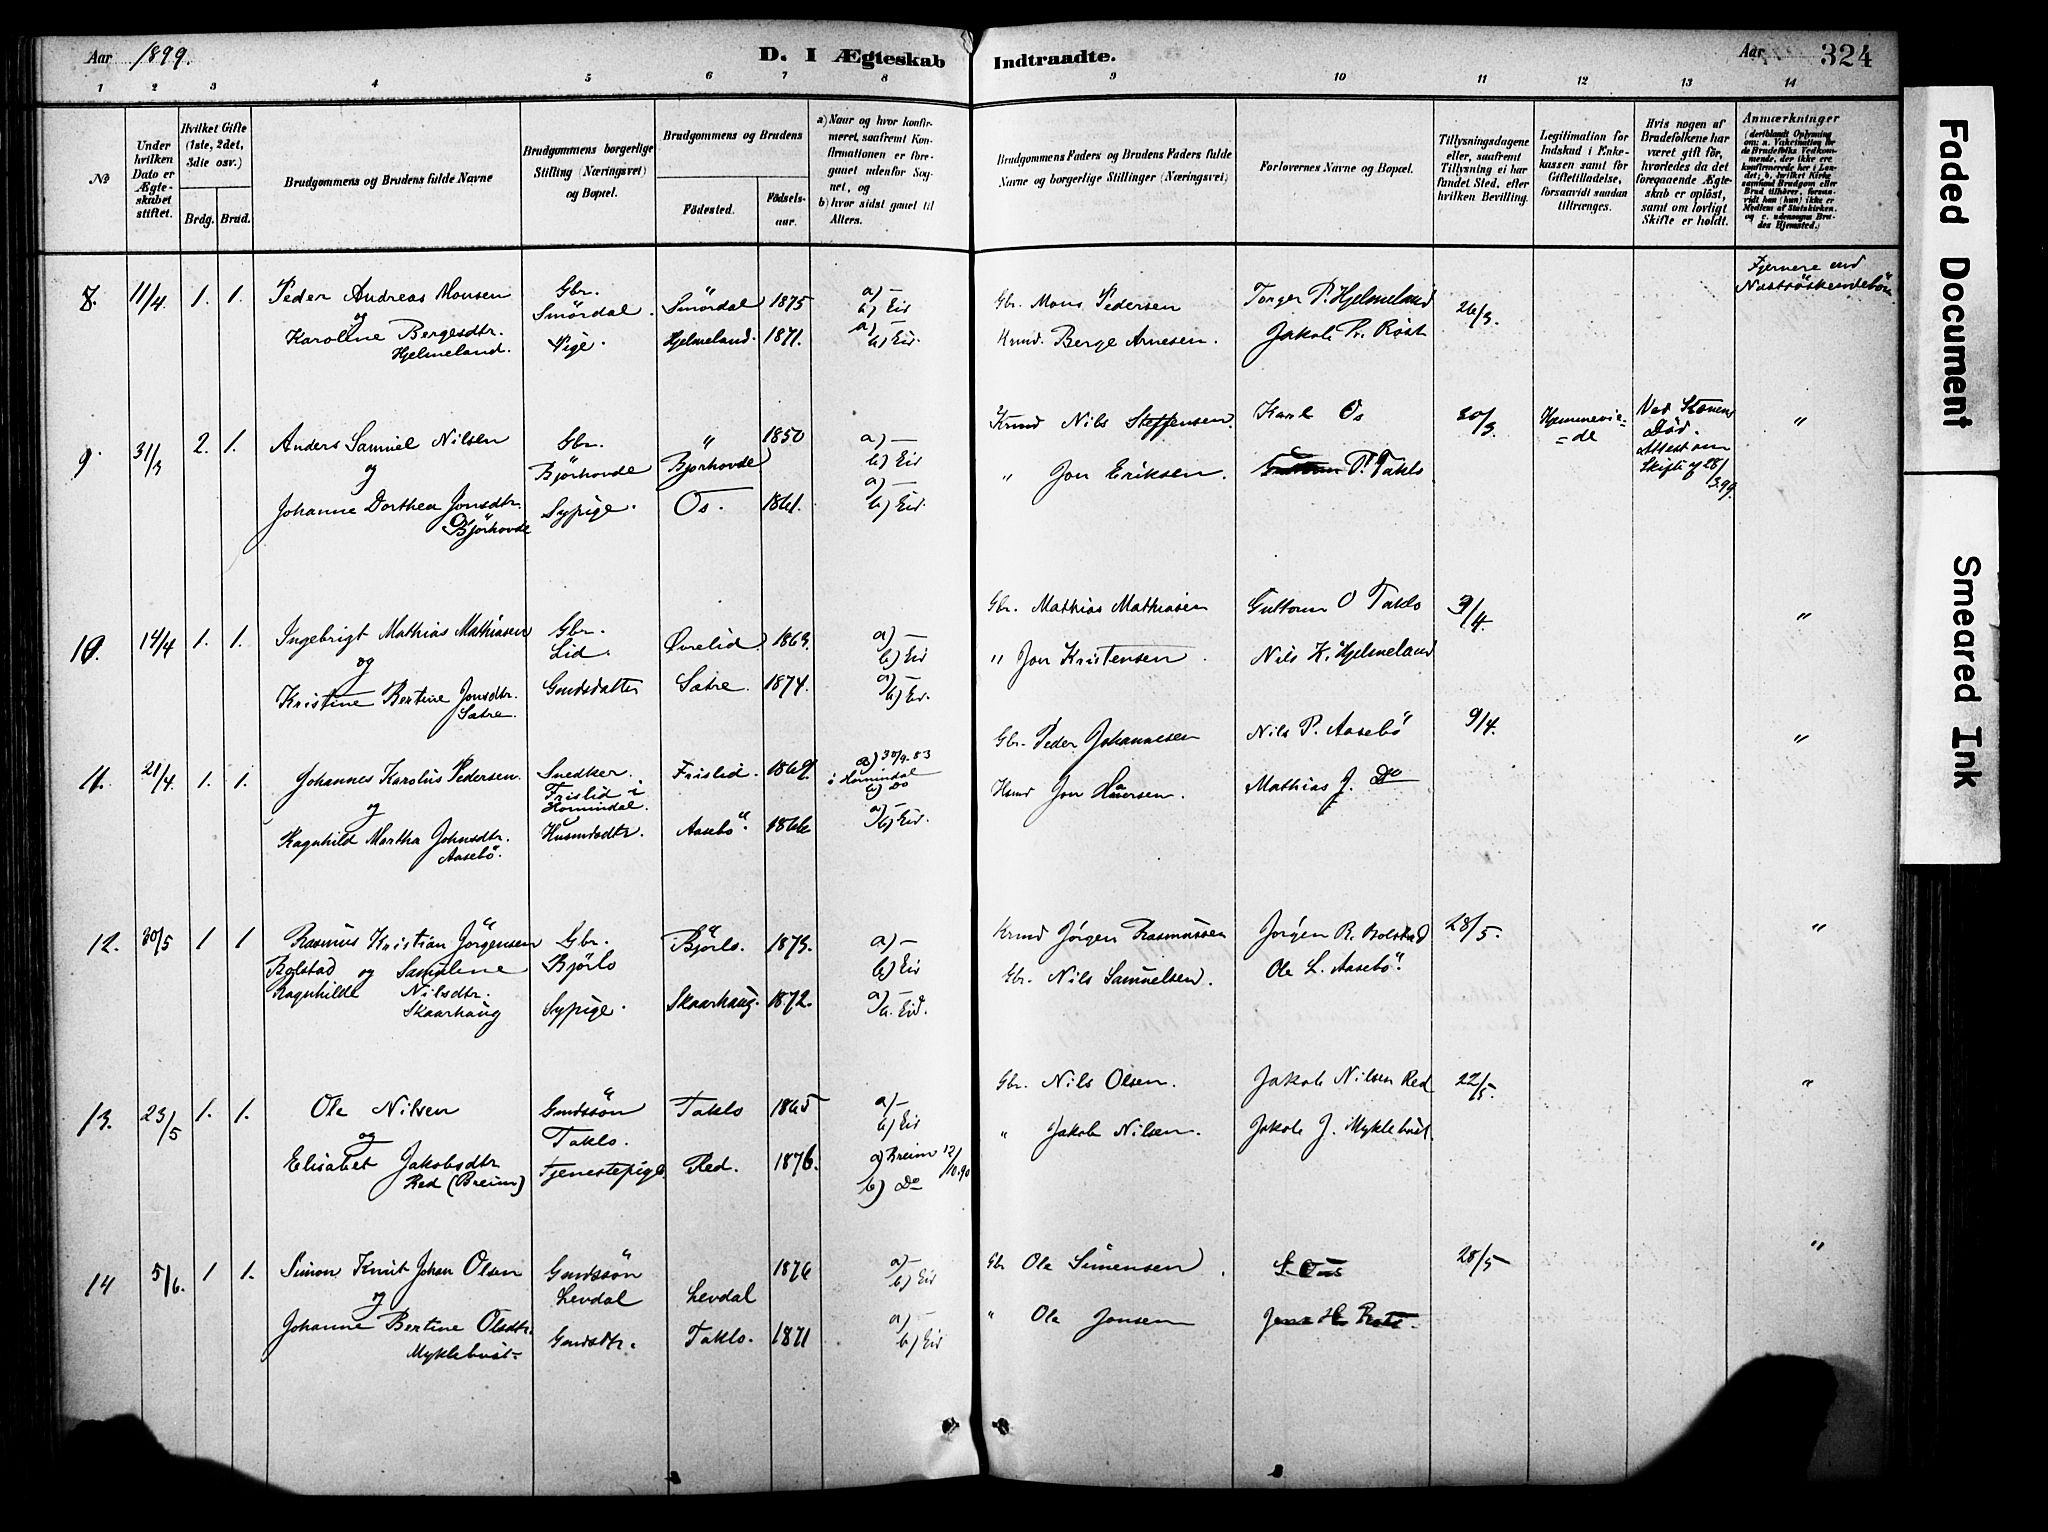 Aar 1899.
D. I Ægteskab Indtraadte.
Aar 324
1 2 3 4 5 6 7 8 9 10 11 12 13 14
No
Under hvilken Dato er Ægteskabet stiftet.
Hvilket Gifte (1ste, 2det, 3die osv.)
Brdg. Brud.
Brudgommens og Brudens fulde Navne
Brudgommens borgerlige Stilling (Næringsvei) og Bopæl.
Brudgommens og Brudens
Fødested.
Fødselsaar.
a) Naar og hvor konfirmeret, saafremt Konfirmationen er foregaaet udenfor Sognet, og
b) hvor sidst gaaet til Alters.
Brudgommens Faders og Brudens Faders fulde Navne og borgerlige Stillinger (Næringsvei)
Forlovernes Navne og Bopæl.
Tillysningsdagene eller, saafremt Tillysning ei har fundet Sted, efter hvilken Bevilling.
Legitimation for Indskud i Enkekassen samt for Giftetilladelse, forsaavidt saadan tiltrænges.
Hvis nogen af Brudefolkene har været gift før, hvorledes da det foregaaende Ægteskab er opløst, samt om lovligt Skifte er holdt.
Anmærkninger (deriblandt Oplysning om: a. Vaksination for de Brudefolks Vedkommende, der ikke ere konfirmerede her i Landet; b. hvilket Kirkesamfund Brudgom eller Brud tilhører, forsaavidt han (hun) ikke er Medlem af Statskirken, og c. udensogns Brudes Hjemsted.)
8. 11/4. 1. 1. Peder Andreas Monsen Gbr. Smördal. Smördal 1875 a) — b) Eid Gbr. Mons Pedersen Torger P. Hjelmeland 26/3. Fjernere end Næstsöskendebörn
og
Karoline Bergesdtr. Hjelmeland. Pige. Hjelmeland. 1871. a) b) Eid. Krmd. Berge Arnesen. Jakob Pr. Röst
9 31/3 2. 1. Anders Samuel Nilsen Gbr. Björhovde " Björhovde 1850 a) — b) Eid Krmd Nils Steffensen. Karl Os 30/3. Ved Konens Död. Attest om Skifte af 28/3.99. "
og
Johanne Dorthea Jonsdtr. Björhovde Sypige. Os. 1861. a) — b) Eid. " Jon Eriksen. P. Taklo
10. 14/4 1. 1. Ingebrigt Mathias Mathiasen Gbr. Lid. Övrelid 1863. a) — b) Eid Gbr. Mathias Mathiasen Guttorm O Taklo 3/4. "
og
Kristine Bertine Jonsdtr. Sætre. Gmdsdatter Sætre. 1874. a) b) Eid. " Jon Kristensen. Nils K. Hjelmeland
11. 21/4. 1. 1. Johannes Karolus Pedersen. Snedker. Frislid i Hornindal. Frislid. 1869. a) 30/9.83 i Hornindal b) Do Gbr. Peder Johannesen Nils P. Aasebö 9/4. "
og
Ragnhild Martha Johnsdtr. Aasebö. Husmdsdtr. Aasebö. 1866 a) — b) Eid. Hsmd Jon Iversen. Mathias J. Do
12. 30/5 1 1 Rasmus Kristian Jörgensen Bolstad Gbr. Björlo Björlo. 1873. a) — b) Eid Krmd Jörgen Rasmussen Jörgen R. Bolstad 28/5. "
og Samuline Ragnhilde Nilsdtr. Skaarhaug Sypige. Skaarhaug. 1872. a) — b. Eid. Gbr. Nils Samuelsen. Ole L. Aasebö.
13. 23/5 1. 1. Ole Nilsen Gmdssön Taklo. Taklo 1865 a) — b) Eid Gbr. Nils Olsen. Jakob Nilsen Red 22/5. "
og
Elisabet Jakobsdtr Red (Breim) Tjenestepige Red. 1876. a) Breim 12/10.90 b) Do " Jakob Nilsen. Jakob J. Myklebust.
14 5/6. 1 1. Simon Knut Johan Olsen Gmdssön Levdal Levdal 1876 a) — b) Eid Gbr Ole Simensen. 28/5 "
og
Johanne Bertine Olsdtr. Myklebust Gmdsdtr. Taklo. 1871 a) — b) Eid " Ole Jonsen
Faded Document
Smeared Ink